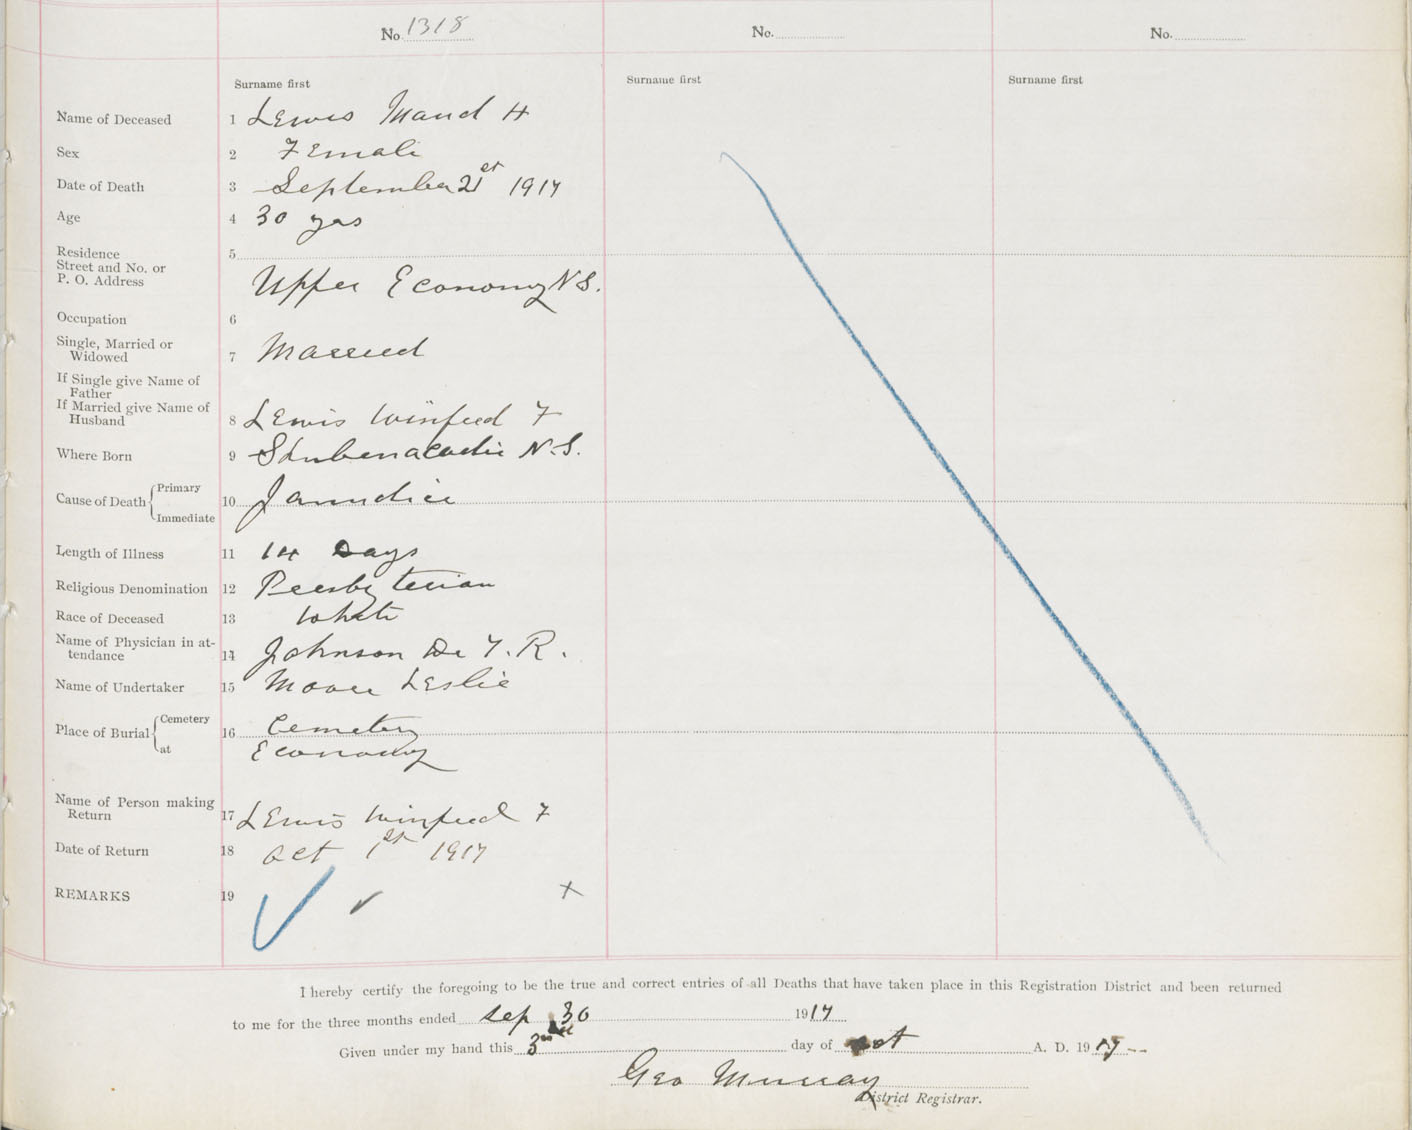 No 1318
No.
No.
Surname first
Surname first
Surname first
Name of Deceased 1 Lewis Maud H
Sex 2 Female
Date of Death 3 September 21st 1917
Age 4 30 yrs
Residence 5
Street and No. or
P. O. Address Upper Economy N S.
Occupation 6
Single, Married or
Widowed 7 Married
If Single give Name of
Father
If Married give Name of
Husband 8 Lewis Winfred F
Where Born 9 Shubenacadie N.S.
Cause of Death { Primary
10 Jaundice
Immediate
Length of Illness 11 14 Days
Religious Denomination 12 Presbyterian
Race of Deceased 13 White
Name of Physician in at-
tendance 14 Johnson Dr T. R.
Name of Undertaker 15 Moore Leslie
Place of Burial { Cemetery
16 Cemetery
at Economy
Name of Person making
Return 17 Lewis Winfred F
Date of Return 18 Oct 1st 1917
REMARKS 19
I hereby certify the foregoing to be the true and correct entries of all Deaths that have taken place in this Registration District and been returned
to me for the three months ended Sep 30 1917
Given under my hand this 3rd day of Oct A. D. 1917
Geo Murray
District Registrar.